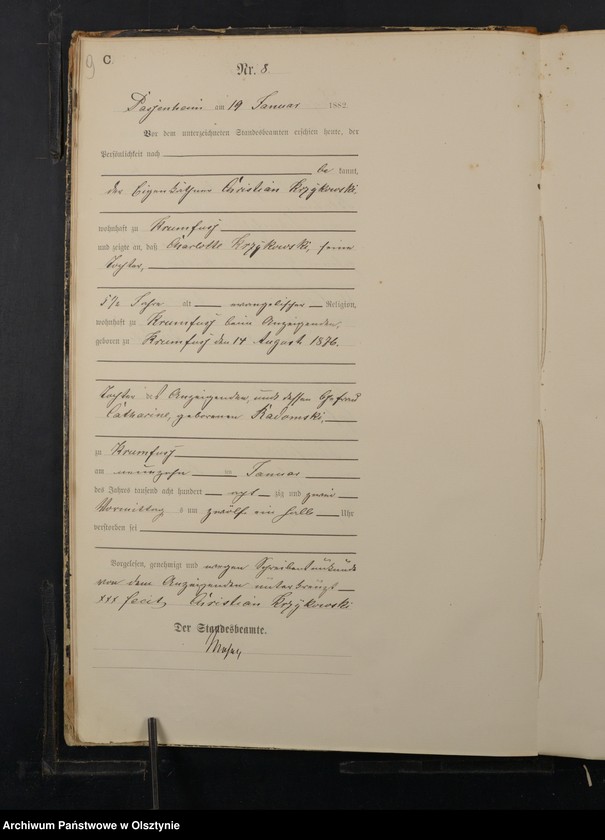 9
C.
Nr. 8.
Passenheim am 19 Januar 1882
Vor dem unterzeichneten Standesbeamten erschien heute, der
Persönlichkeit nach
be kannt,
der Eigenkäthner Christian Krzykowski,
wohnhaft zu Krumfuß
und zeigte an, daß Charlotte Krzykowski, seine
Tochter,
5½ Jahre alt evangelischer Religion,
wohnhaft zu Krumfuß beim Anzeigenden,
geboren zu Krumfuß den 14 August 1876.
Tochter des Anzeigenden, und dessen Ehefrau
Catharine, geborenen Radomski,
zu Krumfuß
am neunzehn ten Januar
des Jahres tausend acht hundert acht zig und zwei
Vormittag s um zwölf ein halb Uhr
verstorben sei
Vorgelesen, genehmigt und wegen Schreibensunkunde
von dem Anzeigenden unterkreuzt
+++ fecit, Christian Krzykowski
Der Standesbeamte.
Archiwum Państwowe w Olsztynie